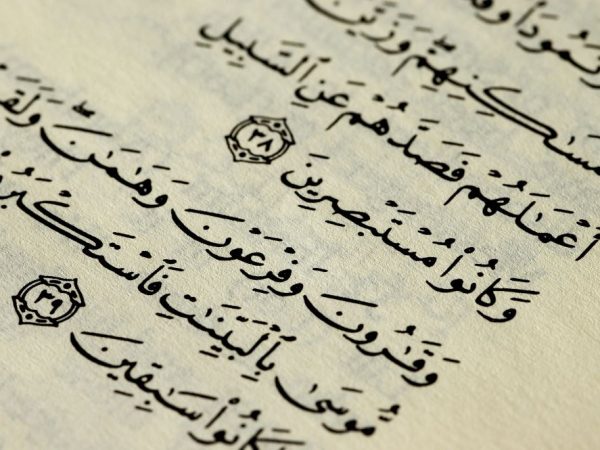 وَثَمُودَا۟
مَّسَـٰكِنِهِمْ وَزَيَّنَ
أَعْمَـٰلَهُمْ فَصَدَّهُمْ عَنِ ٱلسَّبِيلِ
وَكَانُوا۟ مُسْتَبْصِرِينَ ٣٨
وَقَـٰرُونَ وَفِرْعَوْنَ وَهَـٰمَـٰنَۖ
مُّوسَىٰ بِٱلْبَيِّنَـٰتِ
كَانُوا۟ سَـٰبِقِينَ ٣٩